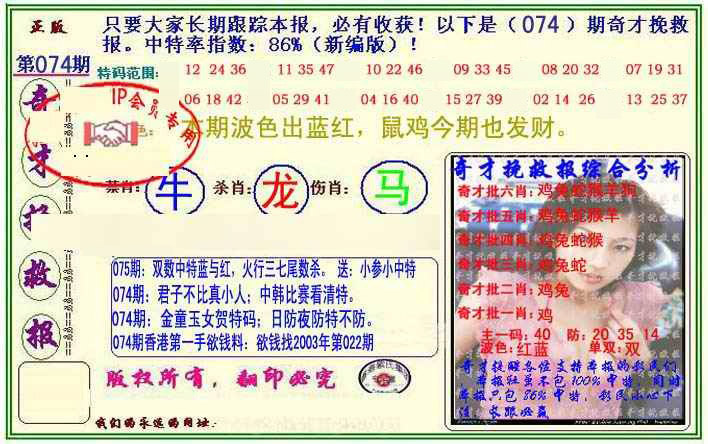 正版
只要大家长期跟踪本报，必有收获！以下是（074）期奇才挽救
报。中特率指数：86%（新编版）！
第074期
特码范围：
12 24 36 11 35 47 10 22 46 09 33 45 08 20 32 07 19 31
06 18 42 05 29 41 04 16 40 15 27 39 02 14 26 13 25 37
IP会员专用
色：本期波色出蓝红，鼠鸡今期也发财。
奇
才
救
报
禁肖：牛 杀肖：龙 伤肖：马
075期：双数中特蓝与红，火行三七尾数杀。 送：小参小中特
074期：君子不比真小人；中韩比赛看清特。
074期：金童玉女贺特码；日防夜防特不防。
074期香港第一手欲钱料：欲钱找2003年第022期
版权所有，翻印必究
我们的永远的网址：
奇才挽救报综合分析
奇才批六肖：鸡兔蛇猴羊狗
奇才批五肖：鸡兔蛇猴羊
奇才批四肖：鸡兔蛇猴
奇才批三肖：鸡兔蛇
奇才批二肖：鸡兔
奇才批一肖：鸡
主一码：40 防：20 35 14
波色：红蓝 单双：双
奇才提醒各位支持本报的彩民们
本报担虽不包100%中特，同时
本报只包86%中特，彩民小心下
注，长跟必赢